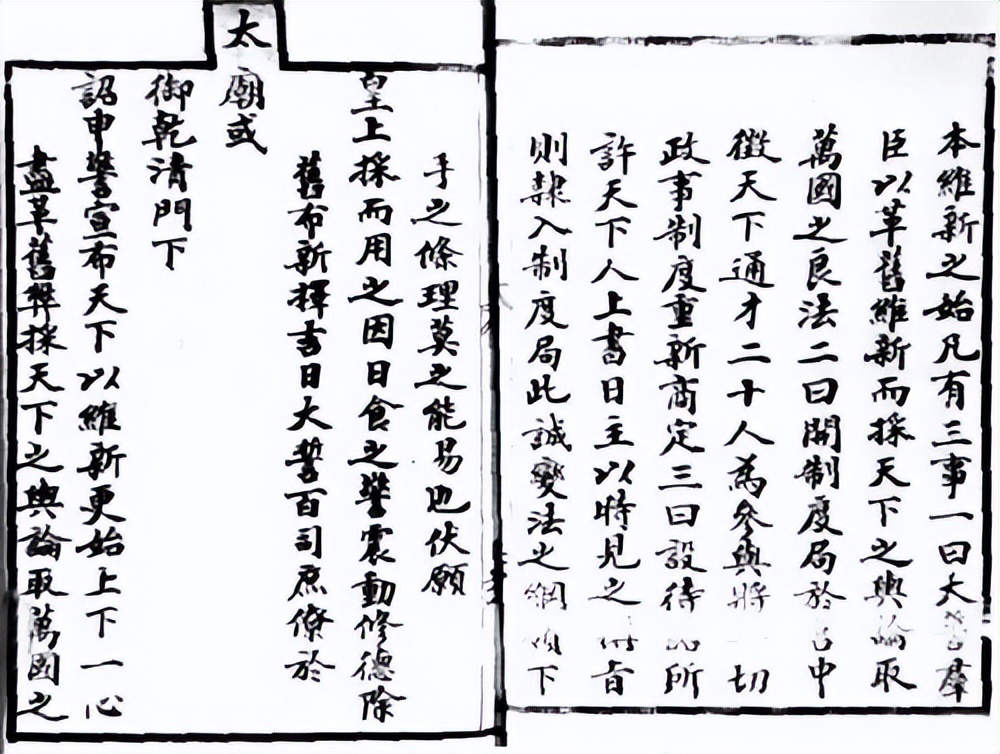 本維新之始凡有三事一曰大誓羣
臣以革舊維新而採天下之輿論取
萬國之良法二曰開制度局於宮中
徵天下通才二十人為參與將一切
政事制度重新商定三曰設待所
許天下人上書日主以時見之旨
則隸入制度局此誠變法之綱領下
手之條理莫之能易也伏願
皇上採而用之因日食之警震動修德除
舊布新擇吉日大誓百司庶僚於
太廟或
御乾清門下
詔申誓宣布天下以維新更始上下一心
盡革舊弊採天下之輿論取萬國之